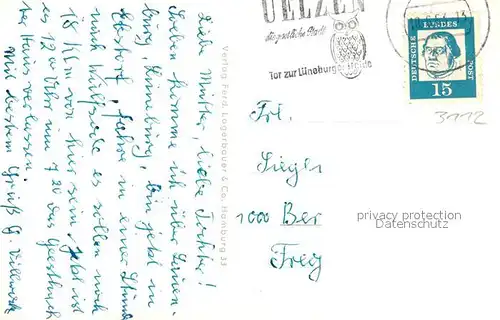 UELZEN
die gastliche Stadt
Tor zur Lüneburger Heide
DEUTSCHE BUNDESPOST
15
3112
Frl.
Siegler
1000 Ber
Freg
privacy protection
Datenschutz
Verlag Ferd. Lagerbauer & Co., Hamburg 33
Liebe Mutter, liebe Tochter!
Soeben komme ich über Lauen-
burg, Lüneburg, bin jetzt in
fahre in einer Stunde
nach es sollen noch
18 Klm von hier sein, jetzt ist
es 12 Uhr um 7.20 das
Haus verlassen.
Mit bestem Gruß